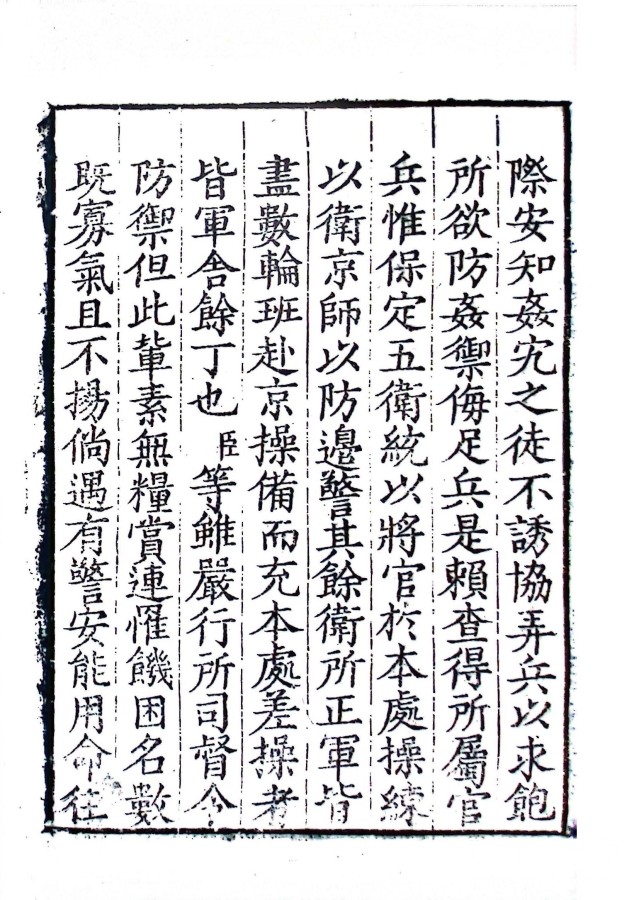 際安知姦宄之徒不誘協弄兵以求飽
所欲防姦禦侮足兵是賴查得所屬官
兵惟保定五衛統以將官於本處操練
以衛京師以防邊警其餘衛所正軍皆
盡數輪班赴京操備而充本處差操者
皆軍舍餘丁也臣等雖嚴行所司督令
防禦但此輩素無糧賞連罹饑困名數
既寡氣且不揚倘遇有警安能用命往